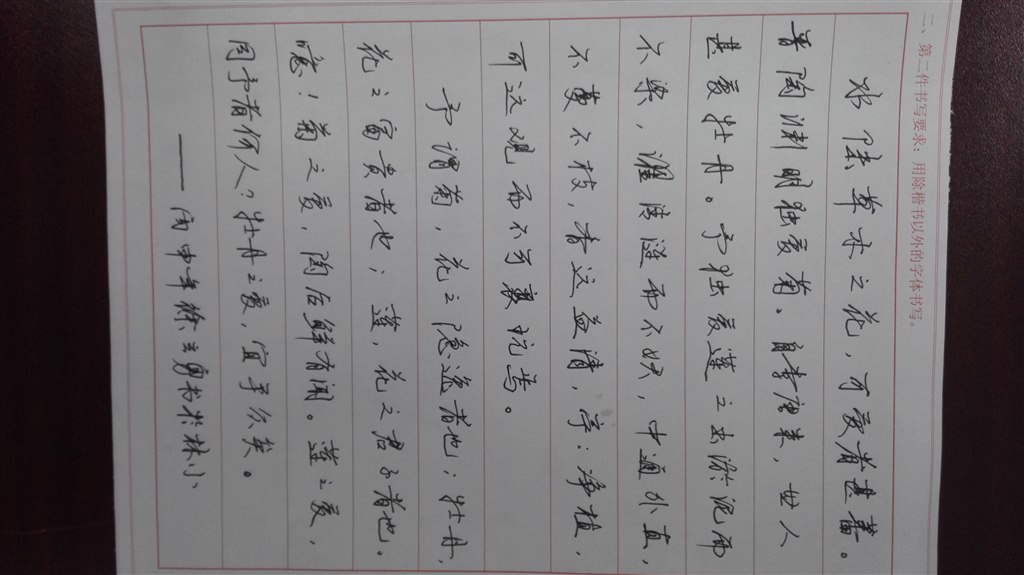 二、第二件书写要求：用除楷书以外的字体书写。
水陆草木之花，可爱者甚蕃。
晋陶渊明独爱菊。自李唐来，世人
甚爱牡丹。予独爱莲之出淤泥而
不染，濯清涟而不妖，中通外直，
不蔓不枝，香远益清，亭：净植，
可远观而不可亵玩焉。
予谓菊，花之隐逸者也；牡丹，
花之富贵者也；莲，花之君子者也。
噫！菊之爱，陶后鲜有闻。莲之爱，
同予者何人？牡丹之爱，宜乎众矣。
——丙申年徐 书於林小